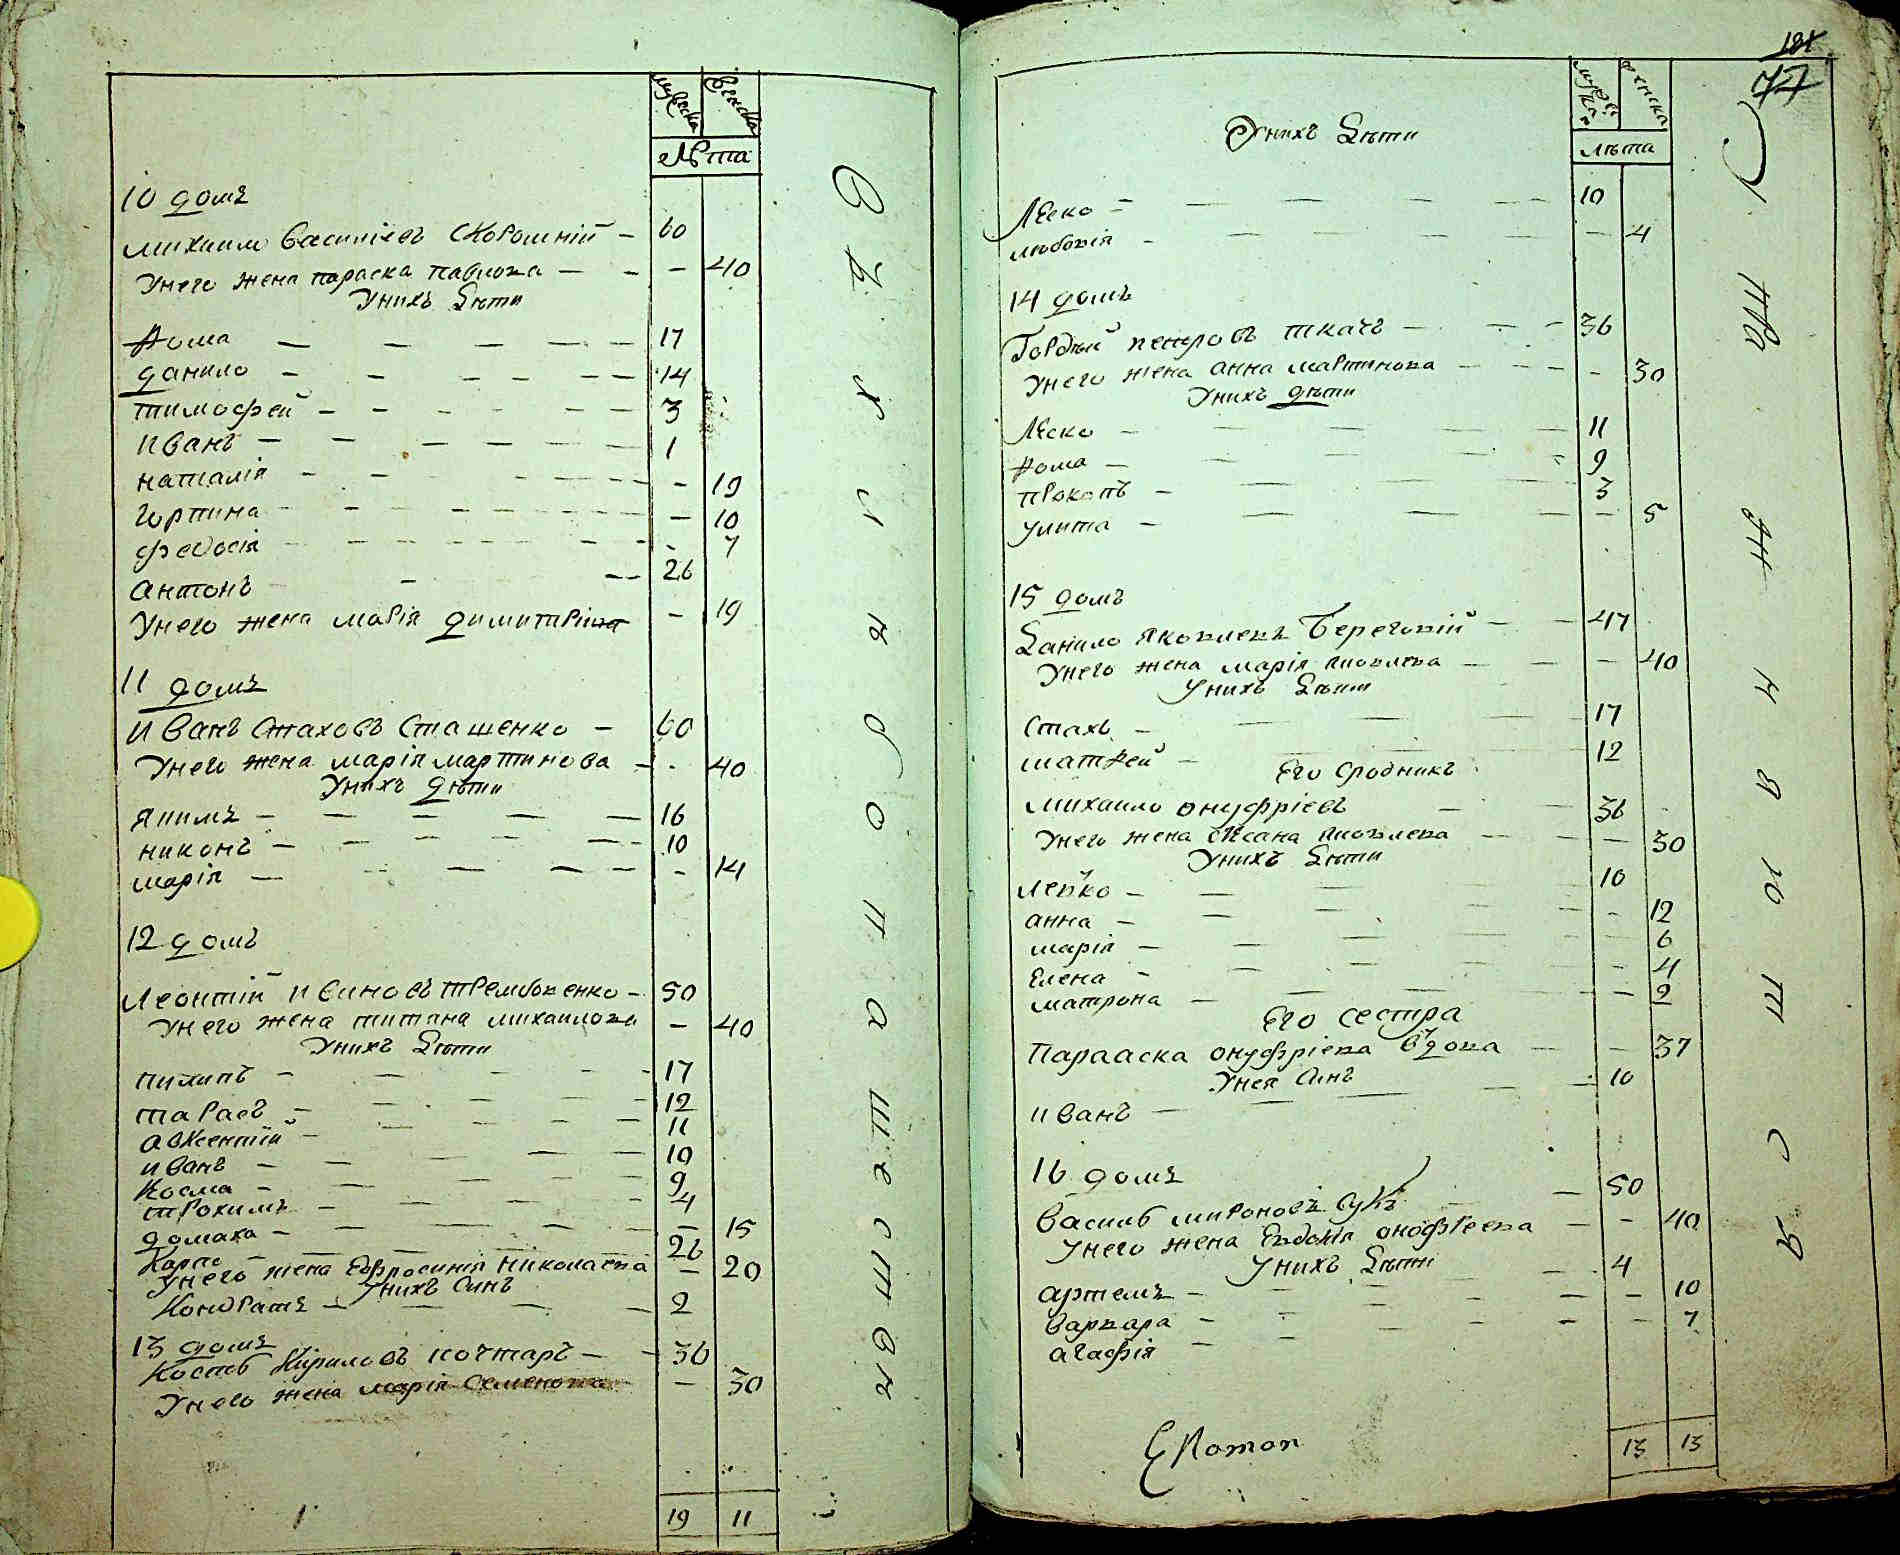 мужеска женска
лѣта
10 домъ
Михаило Василіевъ Скоромній — 60
Унего жена Параска Павлова — — 40
Унихъ дѣти
Ѳома — 17
Данило — 14
Тимофей — 3
Иванъ — 1
Наталія — — 19
Горпина — — 10
Федосія — — 7
Антонъ — 26
Унего жена Марія Димитріева — 19
11 домъ
Иванъ Стаховъ Сташенко — 60
Унего жена Марія Мартинова — — 40
Унихъ дѣти
Якимъ — 16
Никонъ — 10
Марія — — 14
12 домъ
Леонтій Ивановъ Трембовенко — 50
Унего жена Титана Михаилова — 40
Унихъ дѣти
Пилипъ — 17
Тарасъ — 12
Авксентій — 11
Иванъ — 10
Косма — 9
Трохимъ — 4
Домаха — — 15
Карпо — 26
Унего жена Ефросинія Николаева — 20
Унихъ синъ
Кондратъ — 2
13 домъ
Костъ Кириловъ — 36
Унего жена Марія Семенова — 30
19 11
181
77
мужеска женска
лѣта
Унихъ дѣти
Леско — 10
Любовія — — 4
14 домъ
Гордѣй Петровъ Ткачъ — 36
Унего жена Анна Мартинова — — 30
Унихъ дѣти
Леско — 11
Ѳома — 9
Прокопъ — 3
Улита — — 5
15 домъ
Данило Яковлевъ Береговій — 47
Унего жена Марія Яковлева — — 40
Унихъ дѣти
Стахъ — 17
Матѳей — 12
Его сродникъ
Михаило Онуфріевъ — 36
Унего жена Оксана Яковлева — — 30
Унихъ дѣти
Левко — 10
Анна — — 12
Марія — — 6
Елена — — 4
Матрона — — 2
Его сестра
Парааска Онуфріева вдова — — 37
Унея синъ
Иванъ — 10
16 домъ
Василь Мироновъ Сукъ — 50
Унего жена Евдокія Онофреева — — 40
Унихъ дѣти
Артемъ — 4
Варвара — — 10
Агафія — — 7
13 13